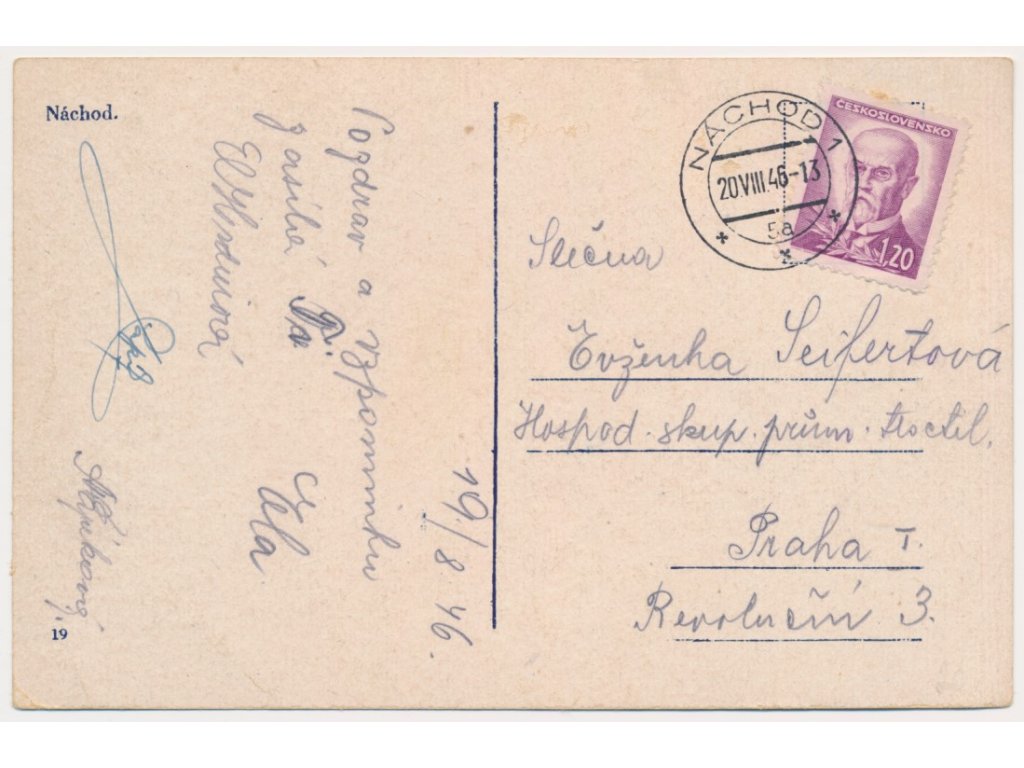 Náchod.
Pozdrav a vzpomínku
zasílá
Ela
19/8. 46.
19
NÁCHOD 1
20.VIII.46-13
5a
ČESKOSLOVENSKO
1,20
Slečna
Evženka Seifertová
Hospod. skup. prům.
Praha I.
Revoluční 3.